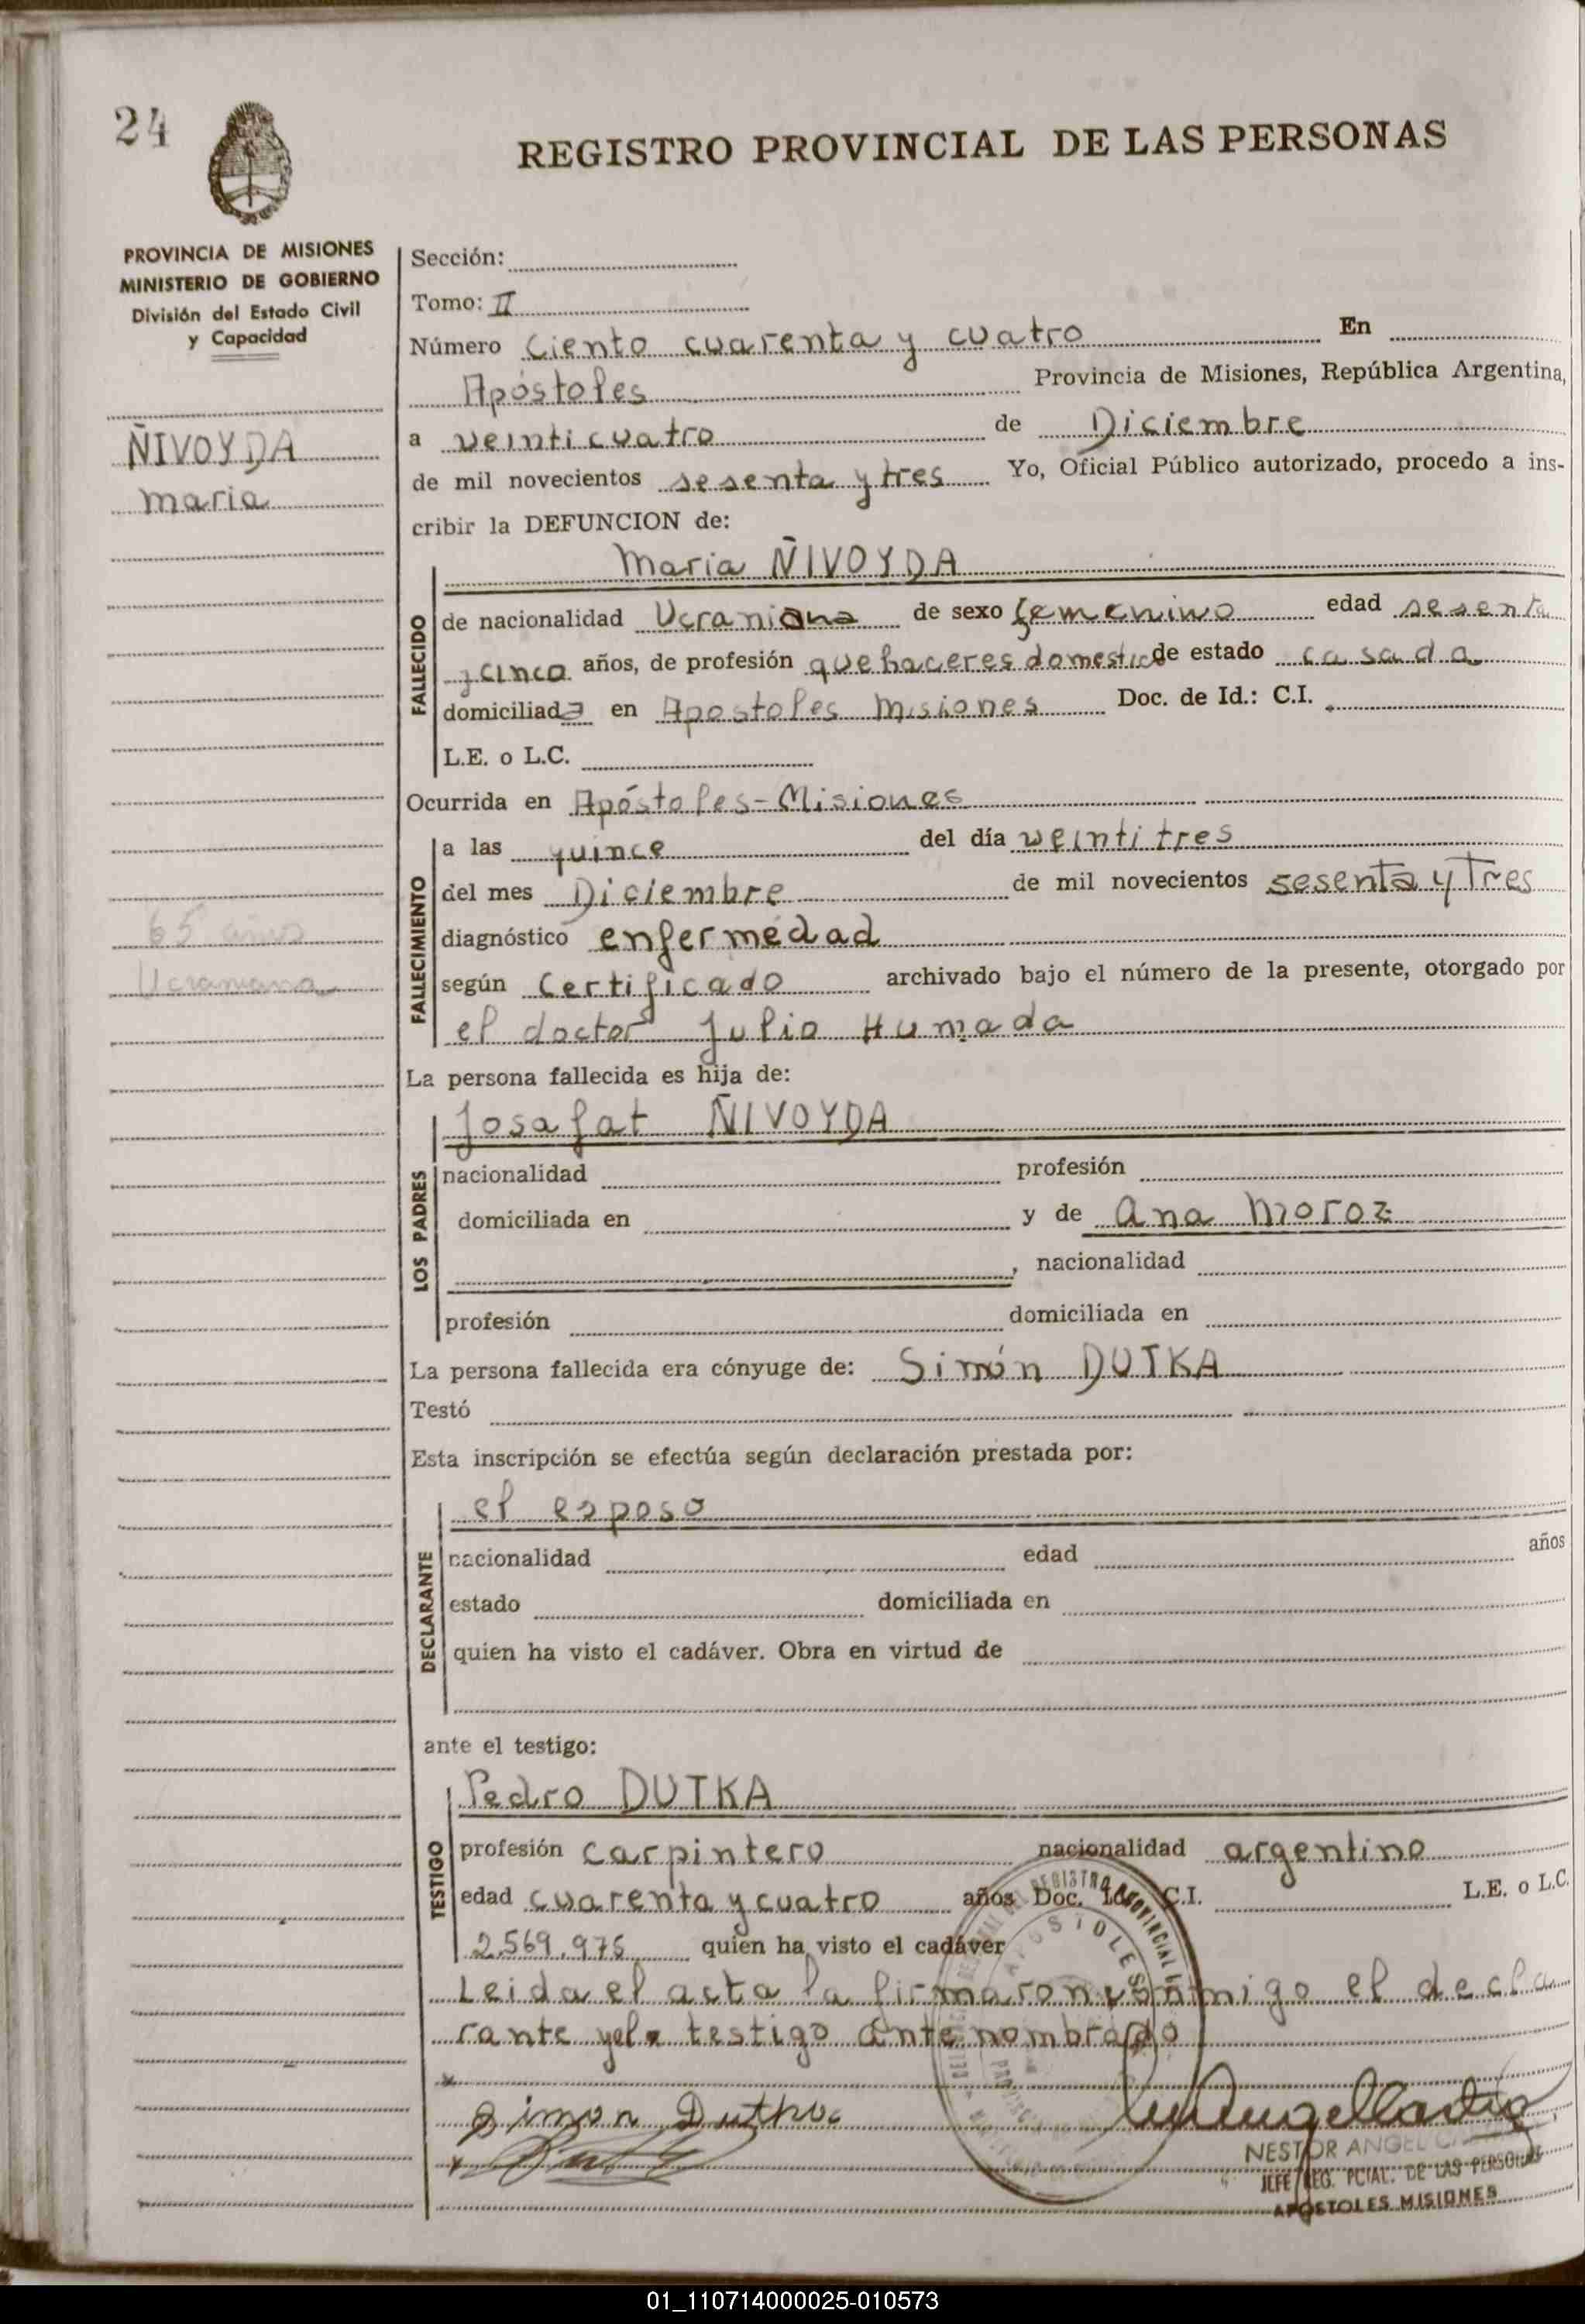 24
REGISTRO PROVINCIAL DE LAS PERSONAS
PROVINCIA DE MISIONES
MINISTERIO DE GOBIERNO
División del Estado Civil
y Capacidad
Sección:
Tomo: II
Número Ciento cuarenta y cuatro En
Apóstoles Provincia de Misiones, República Argentina,
ÑIVOYDA
maria
a veinticuatro de Diciembre
de mil novecientos sesenta y tres Yo, Oficial Público autorizado, procedo a ins-
cribir la DEFUNCION de:
Maria ÑIVOYDA
FALLECIDO
de nacionalidad Ucraniana de sexo femenino edad sesenta
y cinco años, de profesión quehaceres domestico de estado casada
domiciliada en Apostoles Misiones Doc. de Id.: C.I.
L.E. o L.C.
Ocurrida en Apóstoles-Misiones
FALLECIMIENTO
a las quince del día veintitres
del mes Diciembre de mil novecientos sesenta y Tres
65 años
Ucraniana
diagnóstico enfermedad
según Certificado archivado bajo el número de la presente, otorgado por
el doctor Julio Humada
La persona fallecida es hija de:
LOS PADRES
Josafat ÑIVOYDA
nacionalidad profesión
domiciliada en y de Ana Moroz
, nacionalidad
profesión domiciliada en
La persona fallecida era cónyuge de: Simón DUTKA
Testó
Esta inscripción se efectúa según declaración prestada por:
DECLARANTE
el esposo
nacionalidad edad años
estado domiciliada en
quien ha visto el cadáver. Obra en virtud de
ante el testigo:
TESTIGO
Pedro DUTKA
profesión carpintero nacionalidad argentino
edad cuarenta y cuatro años Doc. Id. C.I. L.E. o L.C.
2.569.975 quien ha visto el cadáver
Leida el acta la firmaron conmigo el decla
rante y el testigo ante nombrado
Simon
NESTOR ANGEL
JEFE REG. PCIAL. DE LAS PERSONAS
APOSTOLES MISIONES
01_110714000025-010573